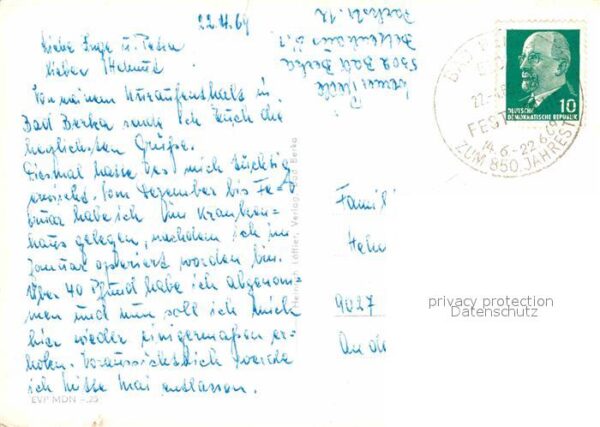 22.4.69
Liebe Inge u. Peter
Lieber Helmut
Von meinem Kuraufenthalt in
Bad Berka sende ich Euch die
herzlichsten Grüße.
Diesmal hatte es mich tüchtig
erwischt. Vom Dezember bis Fe-
bruar habe ich im Kranken-
haus gelegen, nachdem ich im
Januar operiert worden bin.
Über 40 Pfund habe ich abgenom-
men und nun soll ich mich
hier wieder einigermaßen er-
holen. Voraussichtlich werde
ich Mitte Mai entlassen.
EVP MDN -,20
5302 Bad Berka
Heinrich Löffler, Verlag, Bad Berka
DEUTSCHE
DEMOKRATISCHE REPUBLIK
10
BAD BE
22.
FEST
14.6.-22.6.69
ZUM 850 JAHREST
Famil
9027
An de
privacy protection
Datenschutz